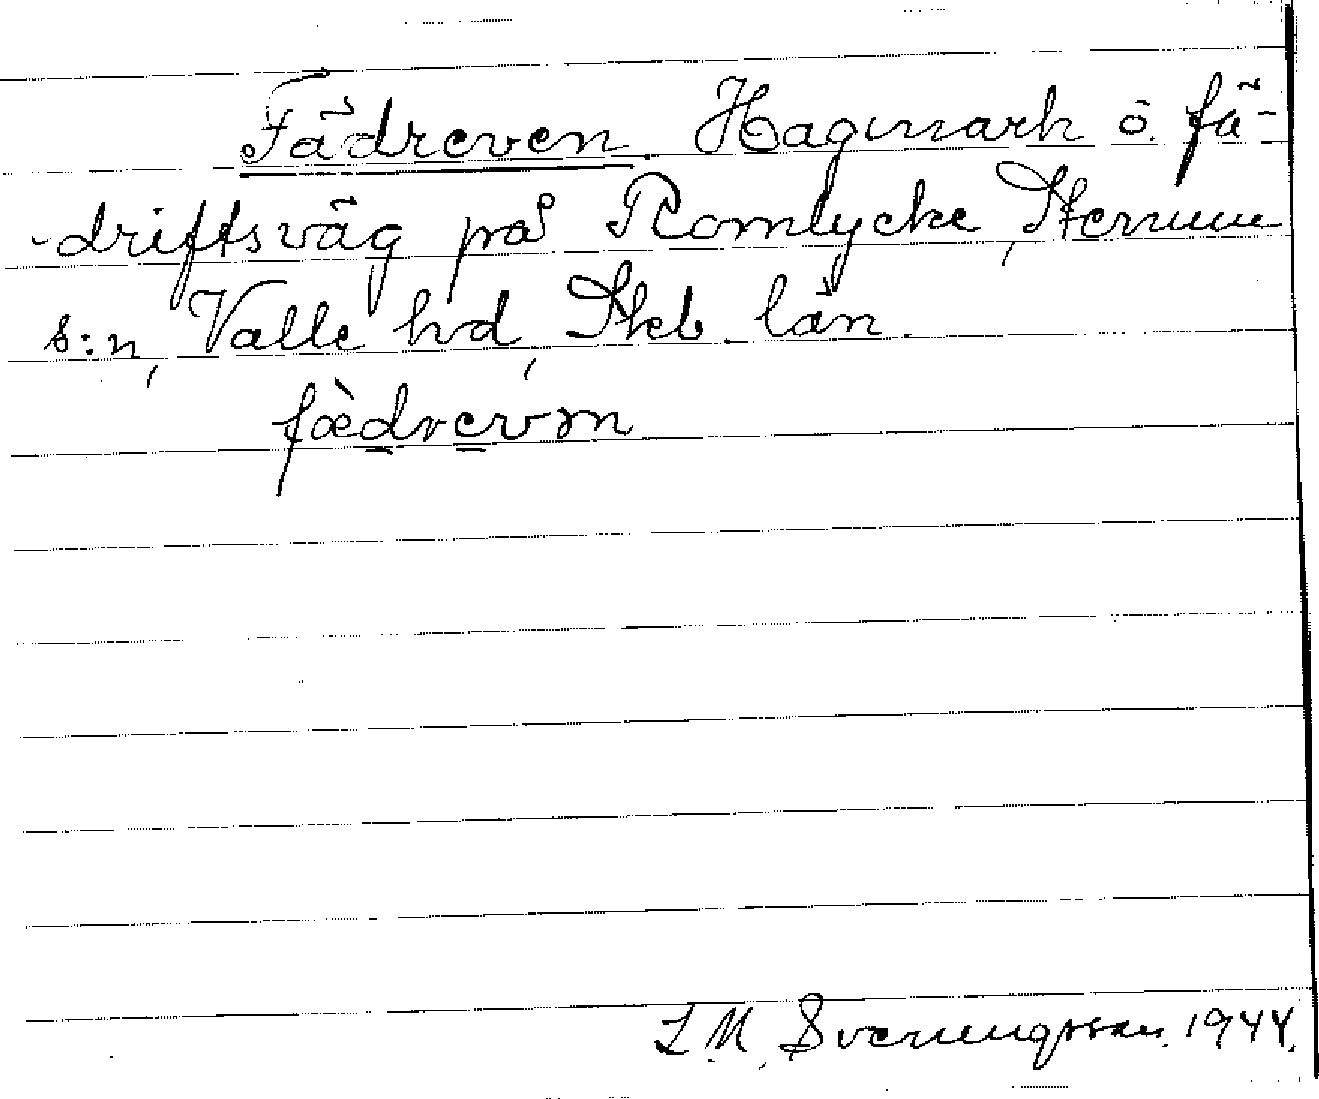 Fädreven Hagmark o. fä-
driftsväg på Romlycke, Stenum
s:n, Valle hd, Skb. län
fæ̀drevm
L. M. Svenungsson. 1944.